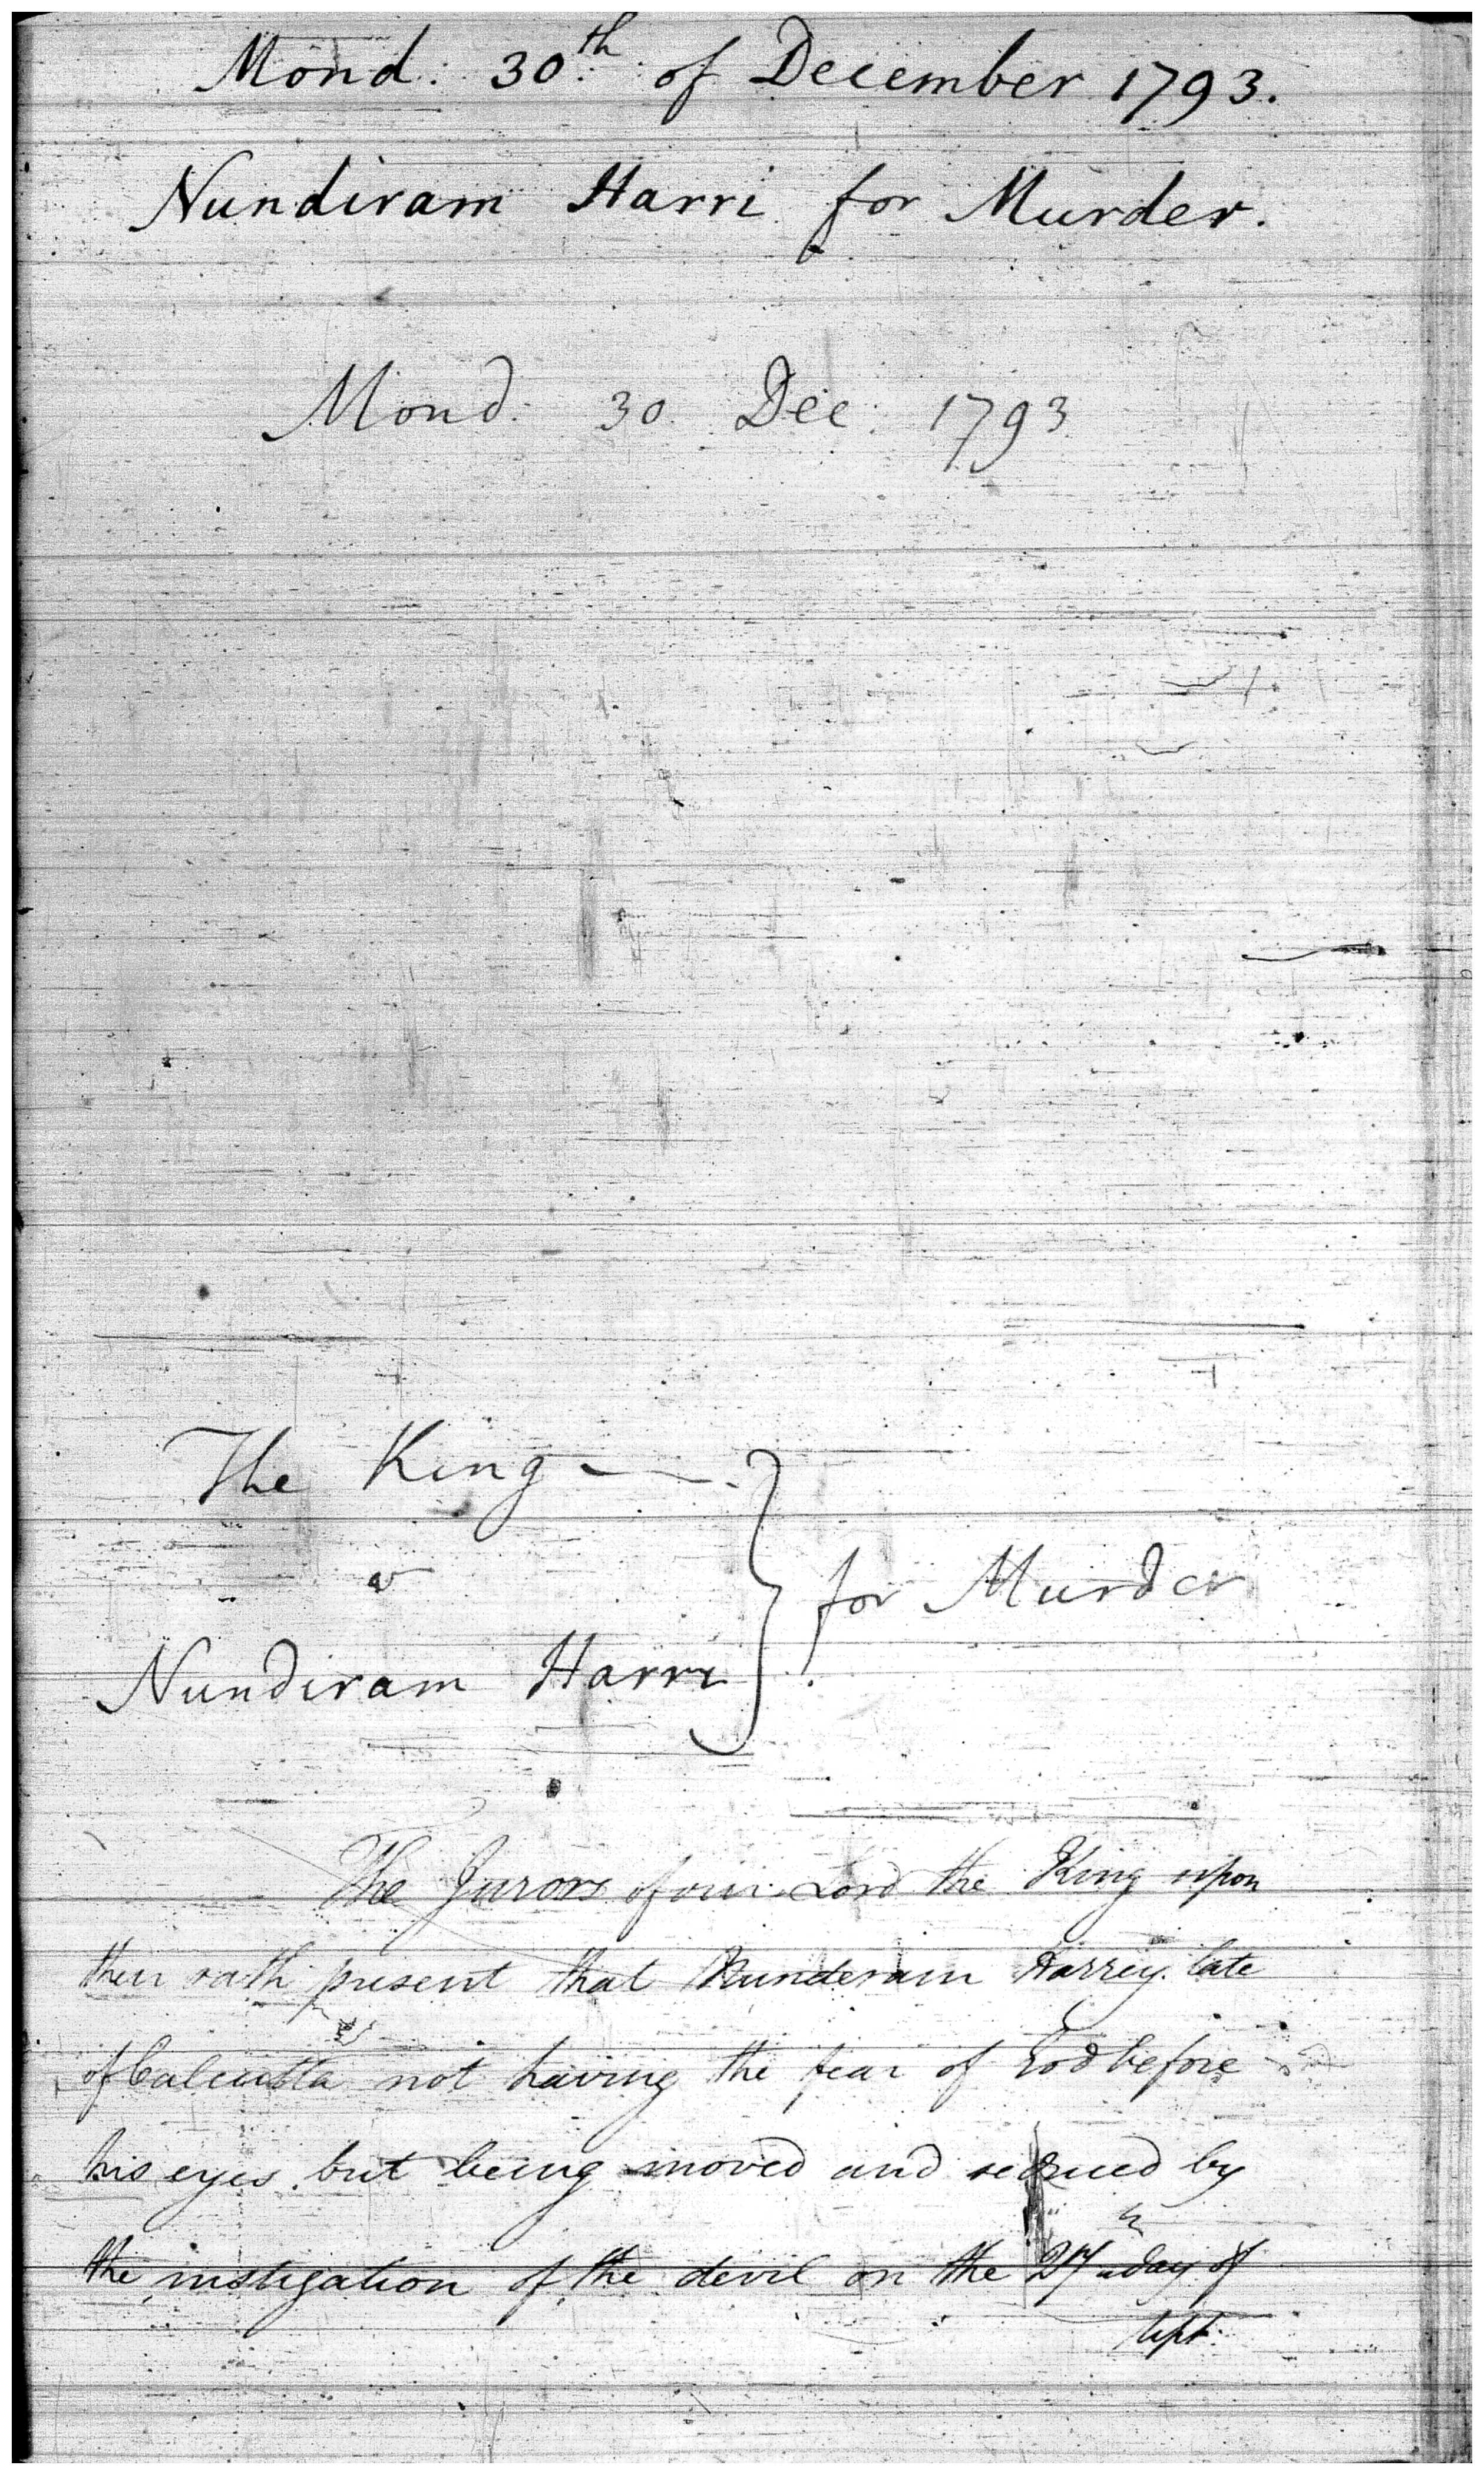 Mond: 30th of December 1793.
Nundiram Harri for Murder.
Mond: 30 Dec: 1793
The King
v
Nundiram Harri
for Murder
The Jurors of our Lord the King upon
their oath present that Nunderam Harrey late
of Calcutta not having the fear of God before
his eyes but being moved and seduced by
the instigation of the devil on the 27th day of
Sept: